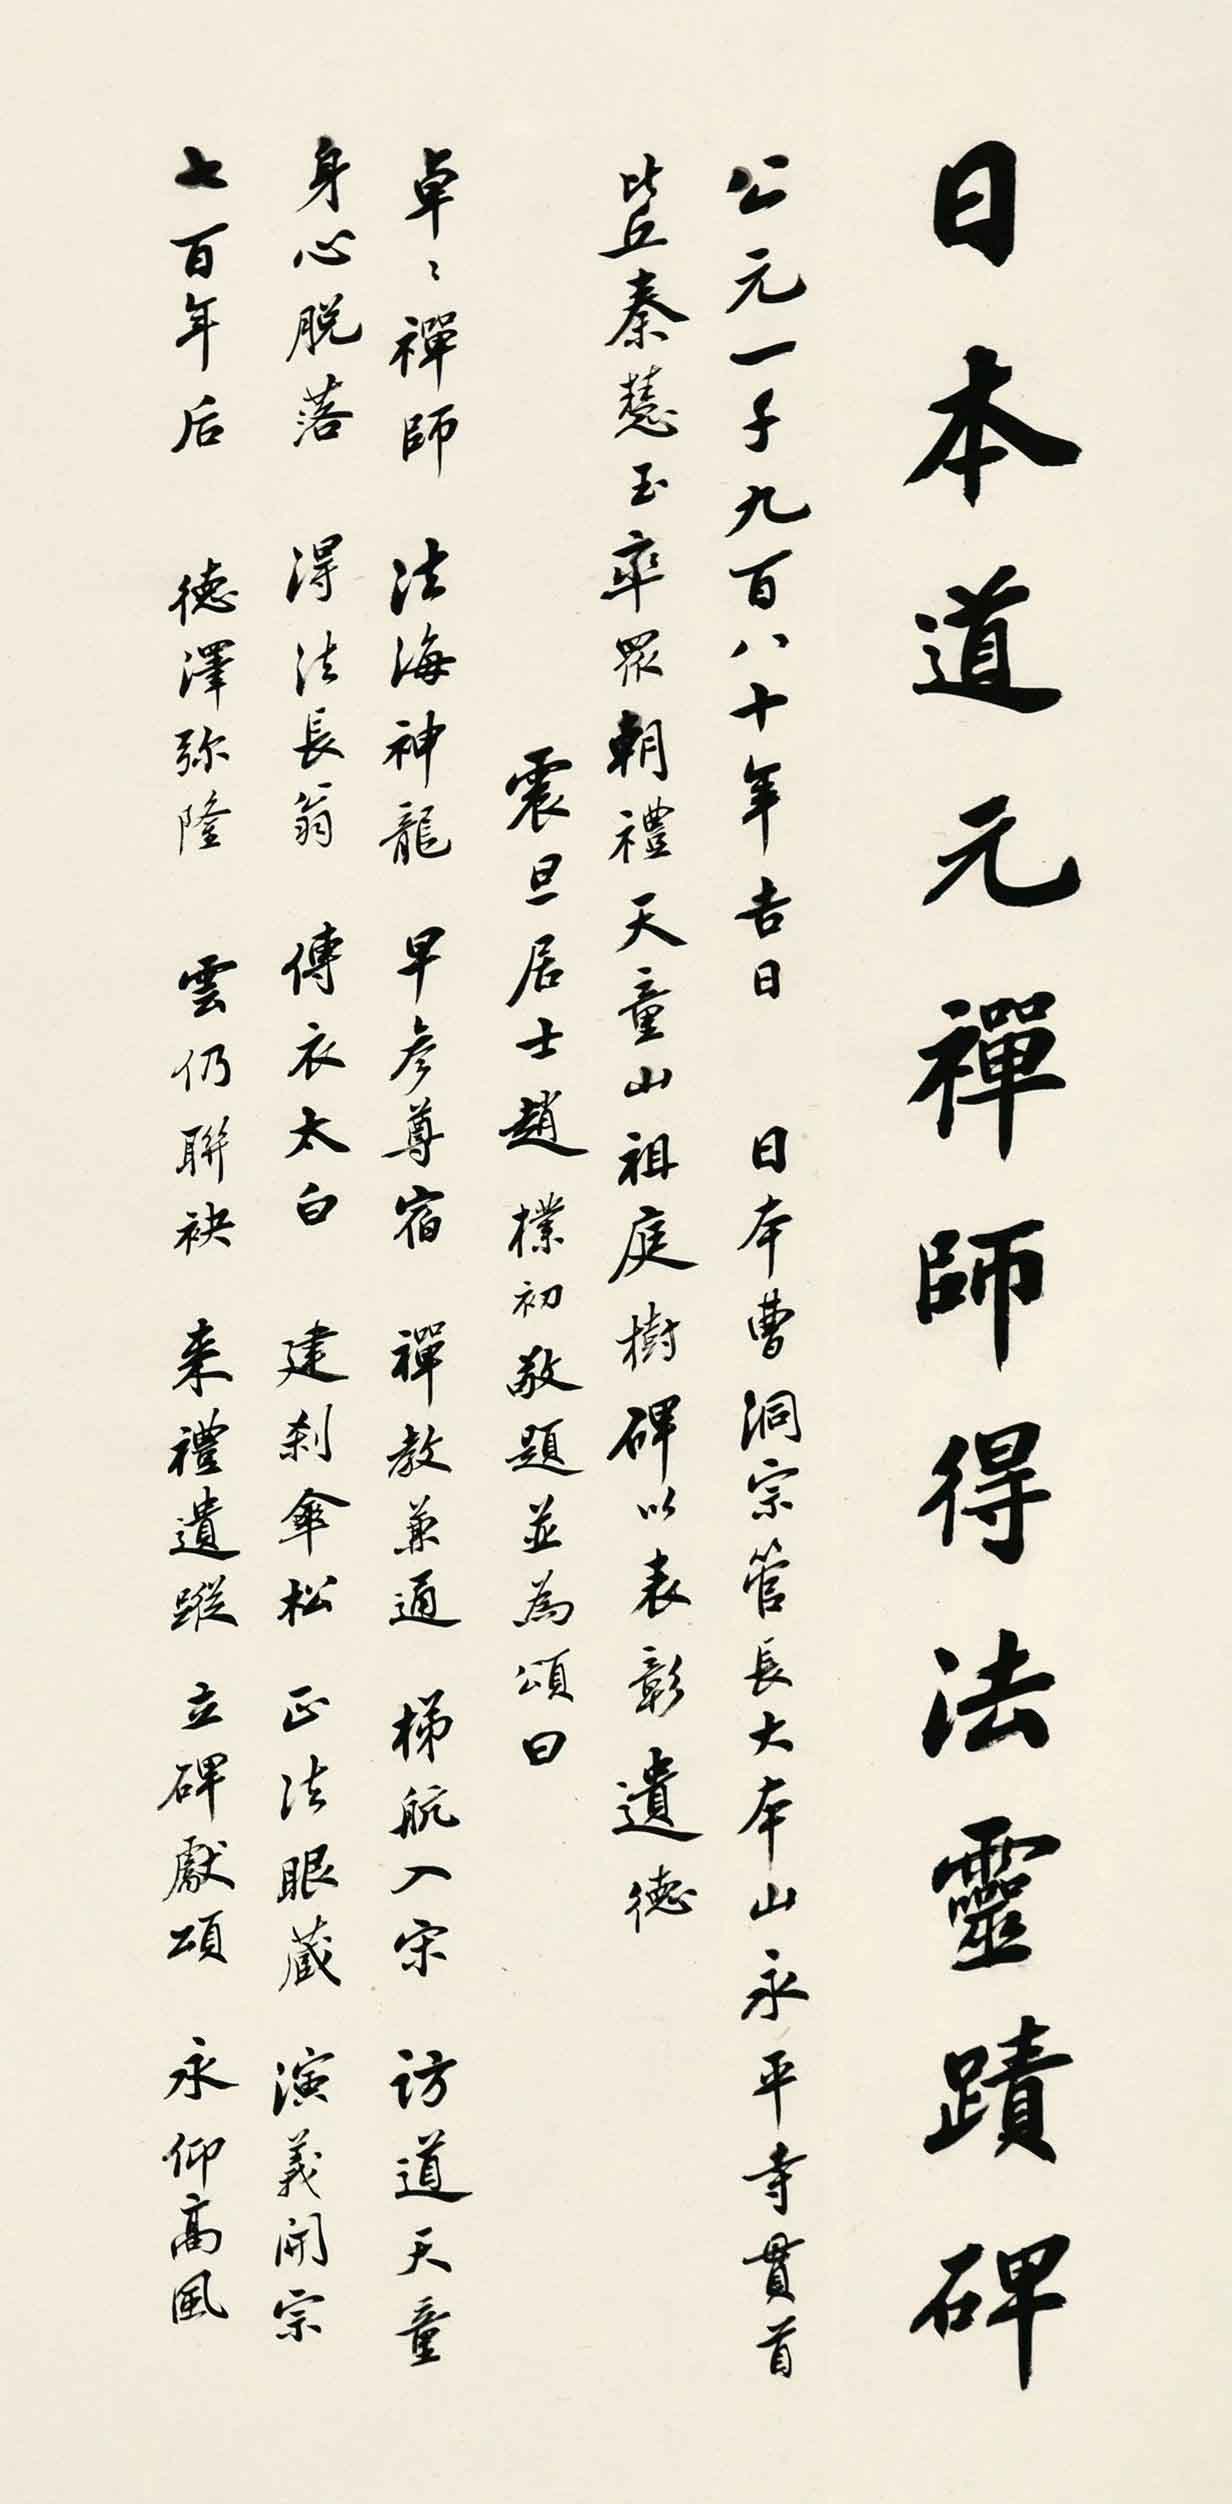 日本道元禪師得法靈蹟碑
公元一千九百八十年吉日 日本曹洞宗管長大本山永平寺貫首
比丘秦慧玉率眾朝禮天童山祖庭樹碑以表彰遺德
震旦居士趙樸初敬題並為頌曰
卓〻禪師 法海神龍 早参尊宿 禪教兼通 梯航入宋 訪道天童
身心脱落 得法長翁 傳衣太白 建刹傘松 正法眼藏 演義開宗
七百年后 德澤弥隆 雲仍聯袂 来禮遺蹤 立碑獻頌 永仰高風